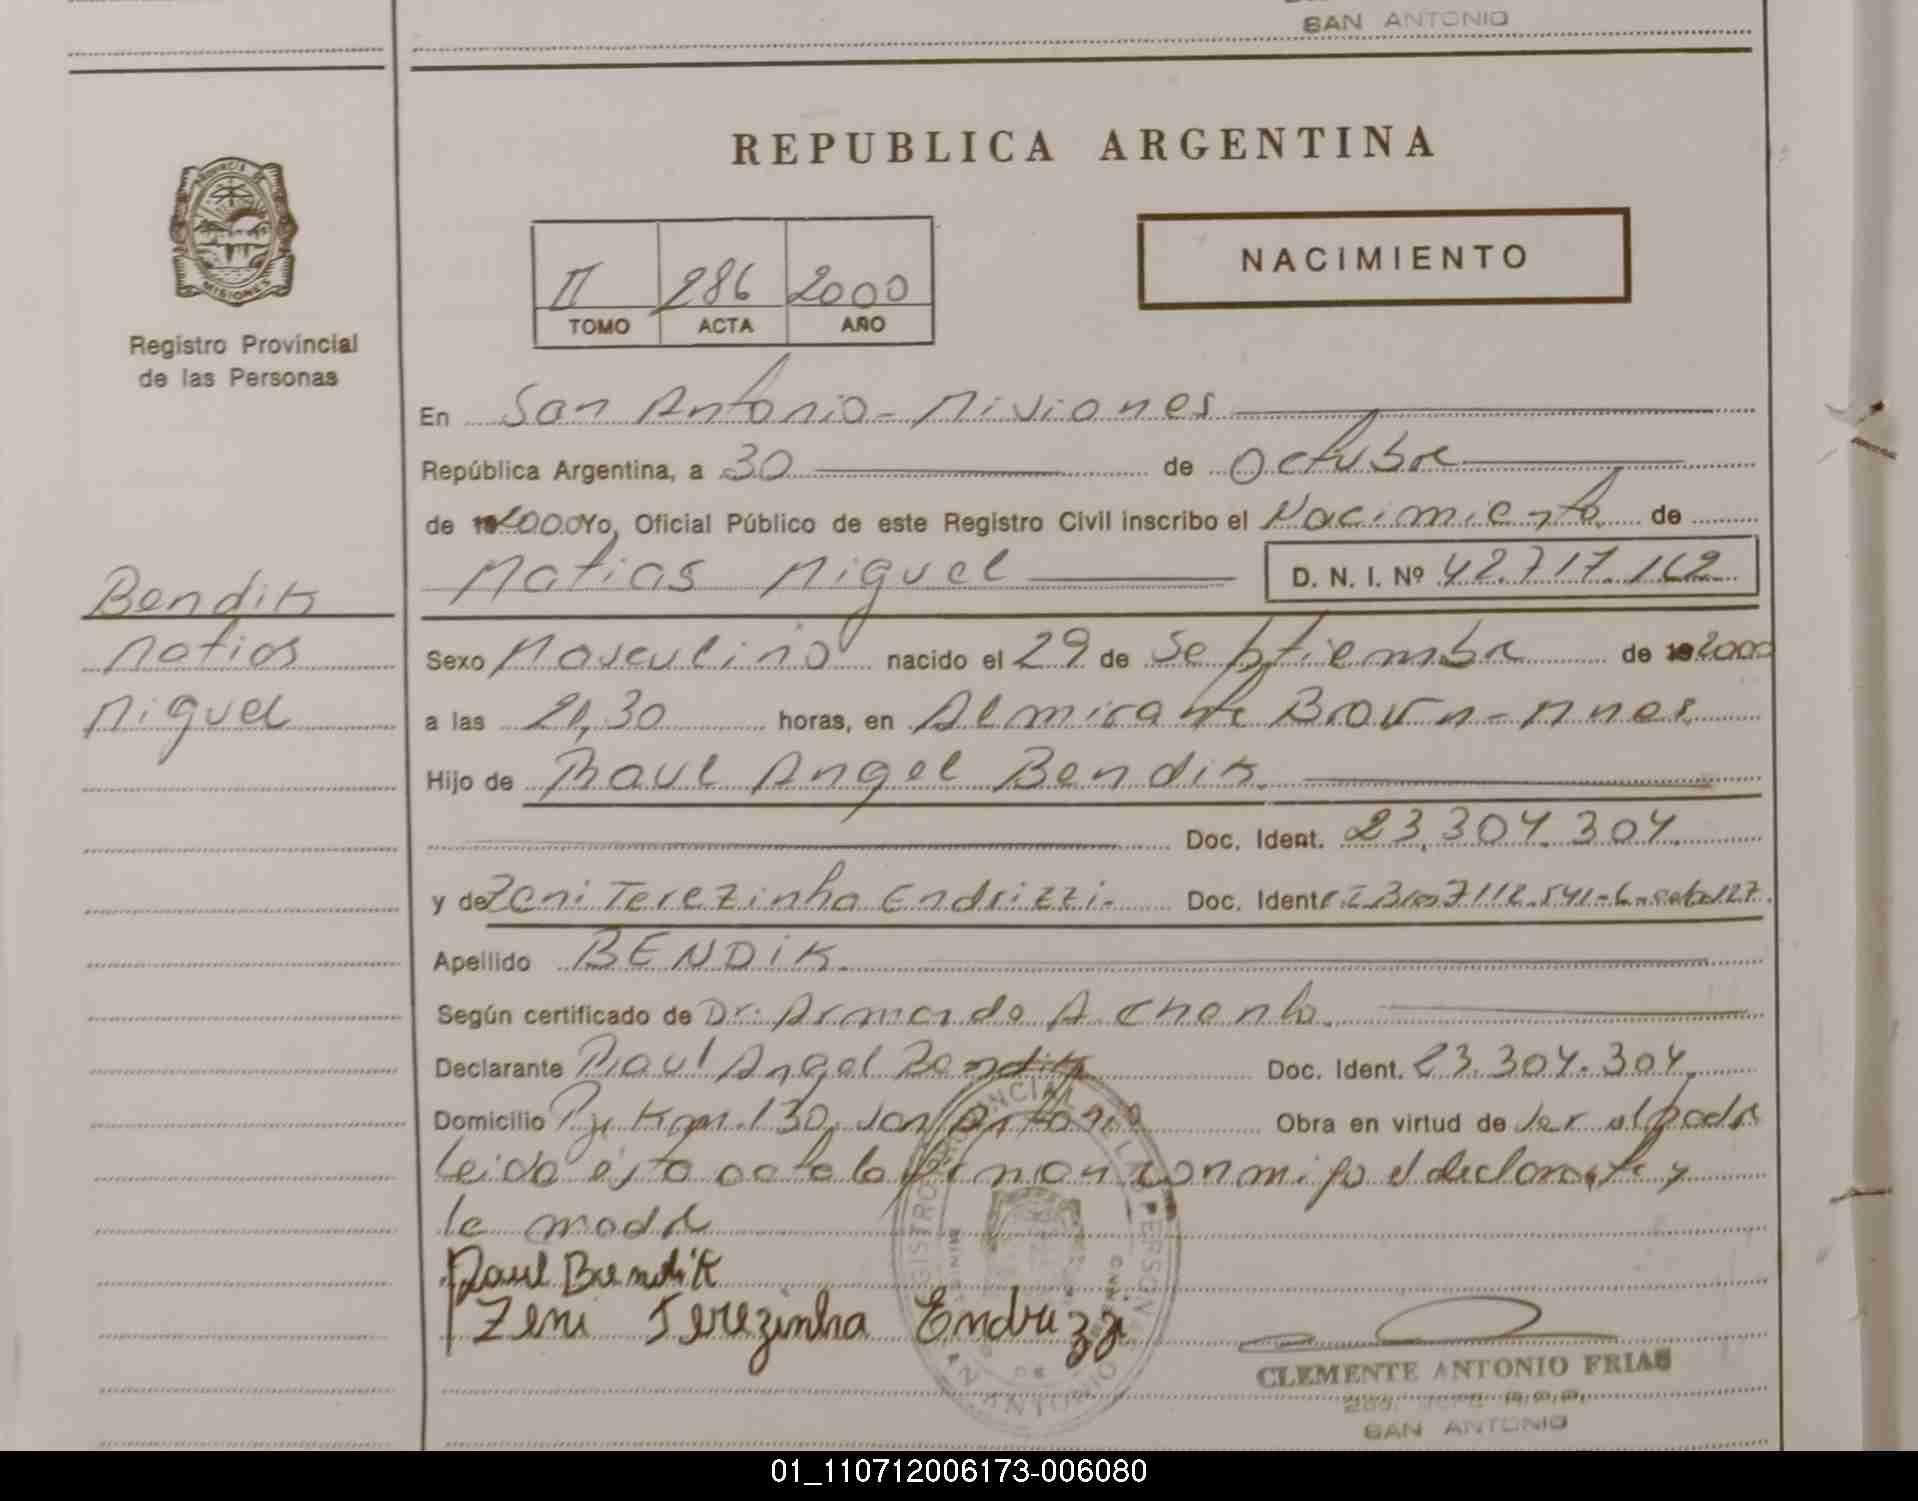 SAN ANTONIO
REPUBLICA ARGENTINA
PROVINCIA DE
MISIONES
Registro Provincial
de las Personas
NACIMIENTO
II 286 2000
TOMO ACTA AÑO
En San Antonio - Misiones
República Argentina, a 30 de Octubre
de 192000 Yo, Oficial Público de este Registro Civil inscribo el Nacimiento de
Matias Miguel D. N. I. Nº 42.717.162
Bendik
Matias
Miguel
Sexo Masculino nacido el 29 de Septiembre de 192000
a las 21,30 horas, en Almirante Brown - Mnes
Hijo de Raul Angel Bendik
Doc. Ident. 23.304.304
y de Zeni Terezinha Endrizzi - Doc. Ident C I Bras 7112.541-6
Apellido BENDIK
Según certificado de Dr. Armando A
Declarante Raul Angel Bendik Doc. Ident. 23.304.304
Domicilio Km. 130 San Antonio Obra en virtud de ser el padre
leida esta acta la firman conmigo el declarante y
la madre
Raul Bendik
Zeni Terezinha Endrizzi
CLEMENTE ANTONIO FRIAS
SAN ANTONIO
01_110712006173-006080